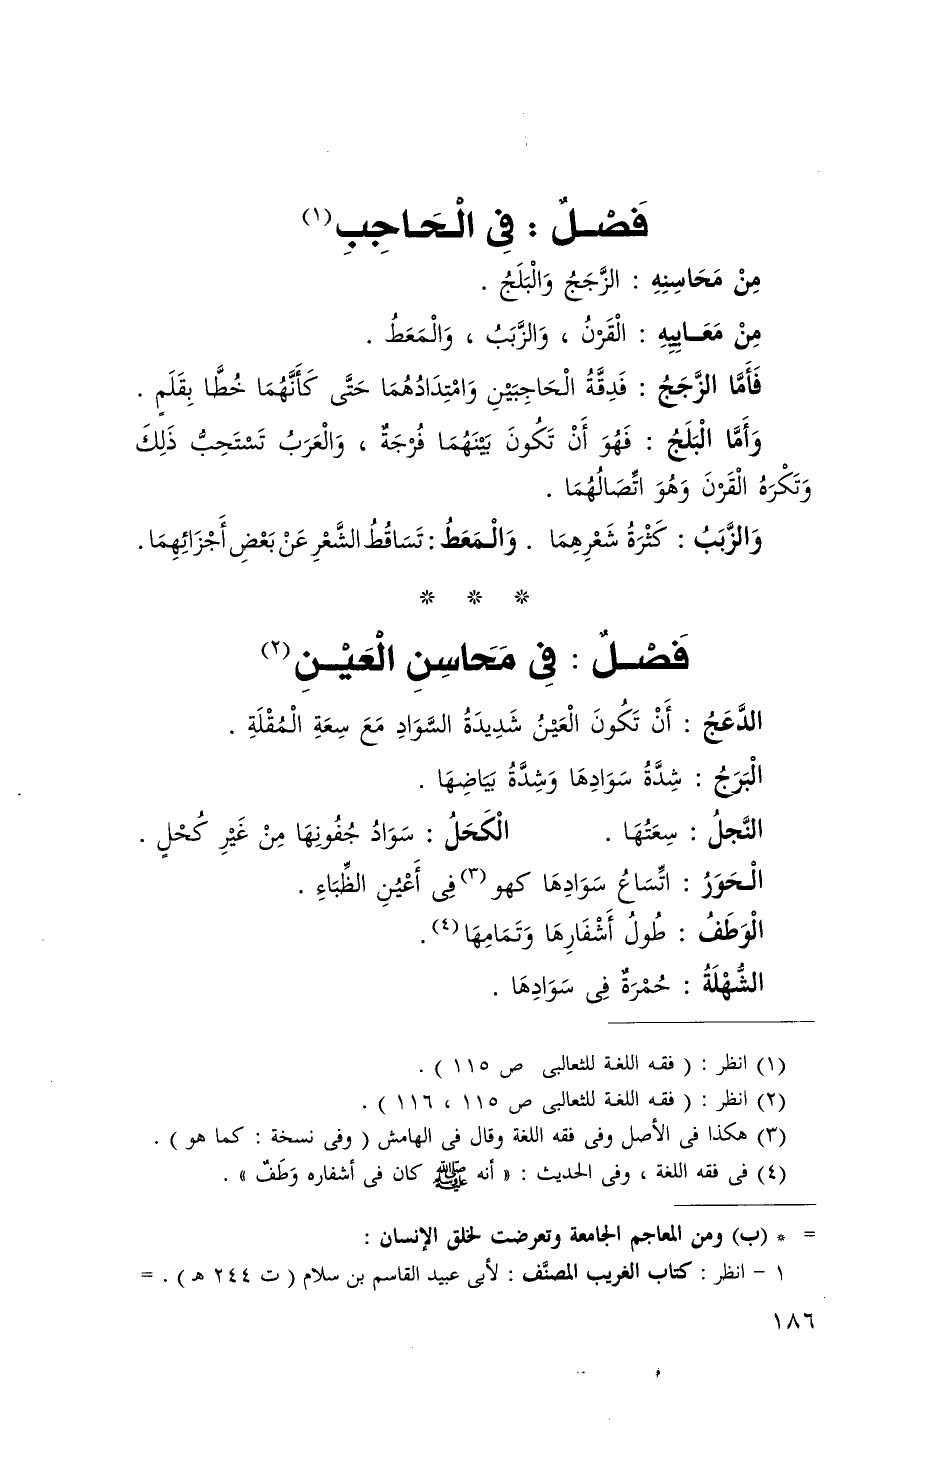 فَصْـلٌ : فِى الْحَـاجِبِ(١)
مِنْ مَحَاسِنِهِ : الزَّجَجُ وَالْبَلَجُ .
مِنْ مَعَـايِبِهِ : الْقَرْنُ ، وَالزَّبَبُ ، وَالْمَعَطُ .
فَأَمَّا الزَّجَجُ : فَدِقَّةُ الْحَاجِبَيْنِ وَامْتِدَادُهُمَا حَتَّى كَأَنَّهُمَا خُطَّا بِقَلَمٍ .
وَأَمَّا الْبَلَجُ : فَهُوَ أَنْ تَكُونَ بَيْنَهُمَا فُرْجَةٌ ، وَالْعَرَبُ تَسْتَحِبُّ ذَلِكَ
وَتَكْرَهُ الْقَرْنَ وَهُوَ اتِّصَالُهُمَا .
وَالزَّبَبُ : كَثْرَةُ شَعْرِهِمَا . وَالْمَعَطُ : تَسَاقُطُ الشَّعْرِ عَنْ بَعْضِ أَجْزَائِهِمَا .
* * *
فَصْـلٌ : فِى مَحَاسِنِ الْعَيْـنِ(٢)
الدَّعَجُ : أَنْ تَكُونَ الْعَيْنُ شَدِيدَةُ السَّوَادِ مَعَ سِعَةِ الْمُقْلَةِ .
الْبَرَجُ : شِدَّةُ سَوَادِهَا وَشِدَّةُ بَيَاضِهَا .
النَّجَلُ : سِعَتُهَا . الْكَحَلُ : سَوَادُ جُفُونِهَا مِنْ غَيْرِ كُحْلٍ .
الْحَوَرُ : اتِّسَاعُ سَوَادِهَا كهو(٣) فِى أَعْيُنِ الظِّبَاءِ .
الْوَطَفُ : طُولُ أَشْفَارِهَا وَتَمَامِهَا(٤) .
الشُّهْلَةُ : حُمْرَةٌ فِى سَوَادِهَا .
(١) انظر : ( فقه اللغة للثعالبى ص ١١٥ ) .
(٢) انظر : ( فقه اللغة للثعالبى ص ١١٥ ، ١١٦ ) .
(٣) هكذا فى الأصل وفى فقه اللغة وقال فى الهامش ( وفى نسخة : كما هو ) .
(٤) فى فقه اللغة ، وفى الحديث : « أنه ﷺ كان فى أشفاره وَطَفٌ » .
= * (ب) ومن المعاجم الجامعة وتعرضت لخلق الإنسان :
١ - انظر : كتاب الغريب المصنَّف : لأبى عبيد القاسم بن سلام ( ت ٢٤٤ هـ ) . =
١٨٦